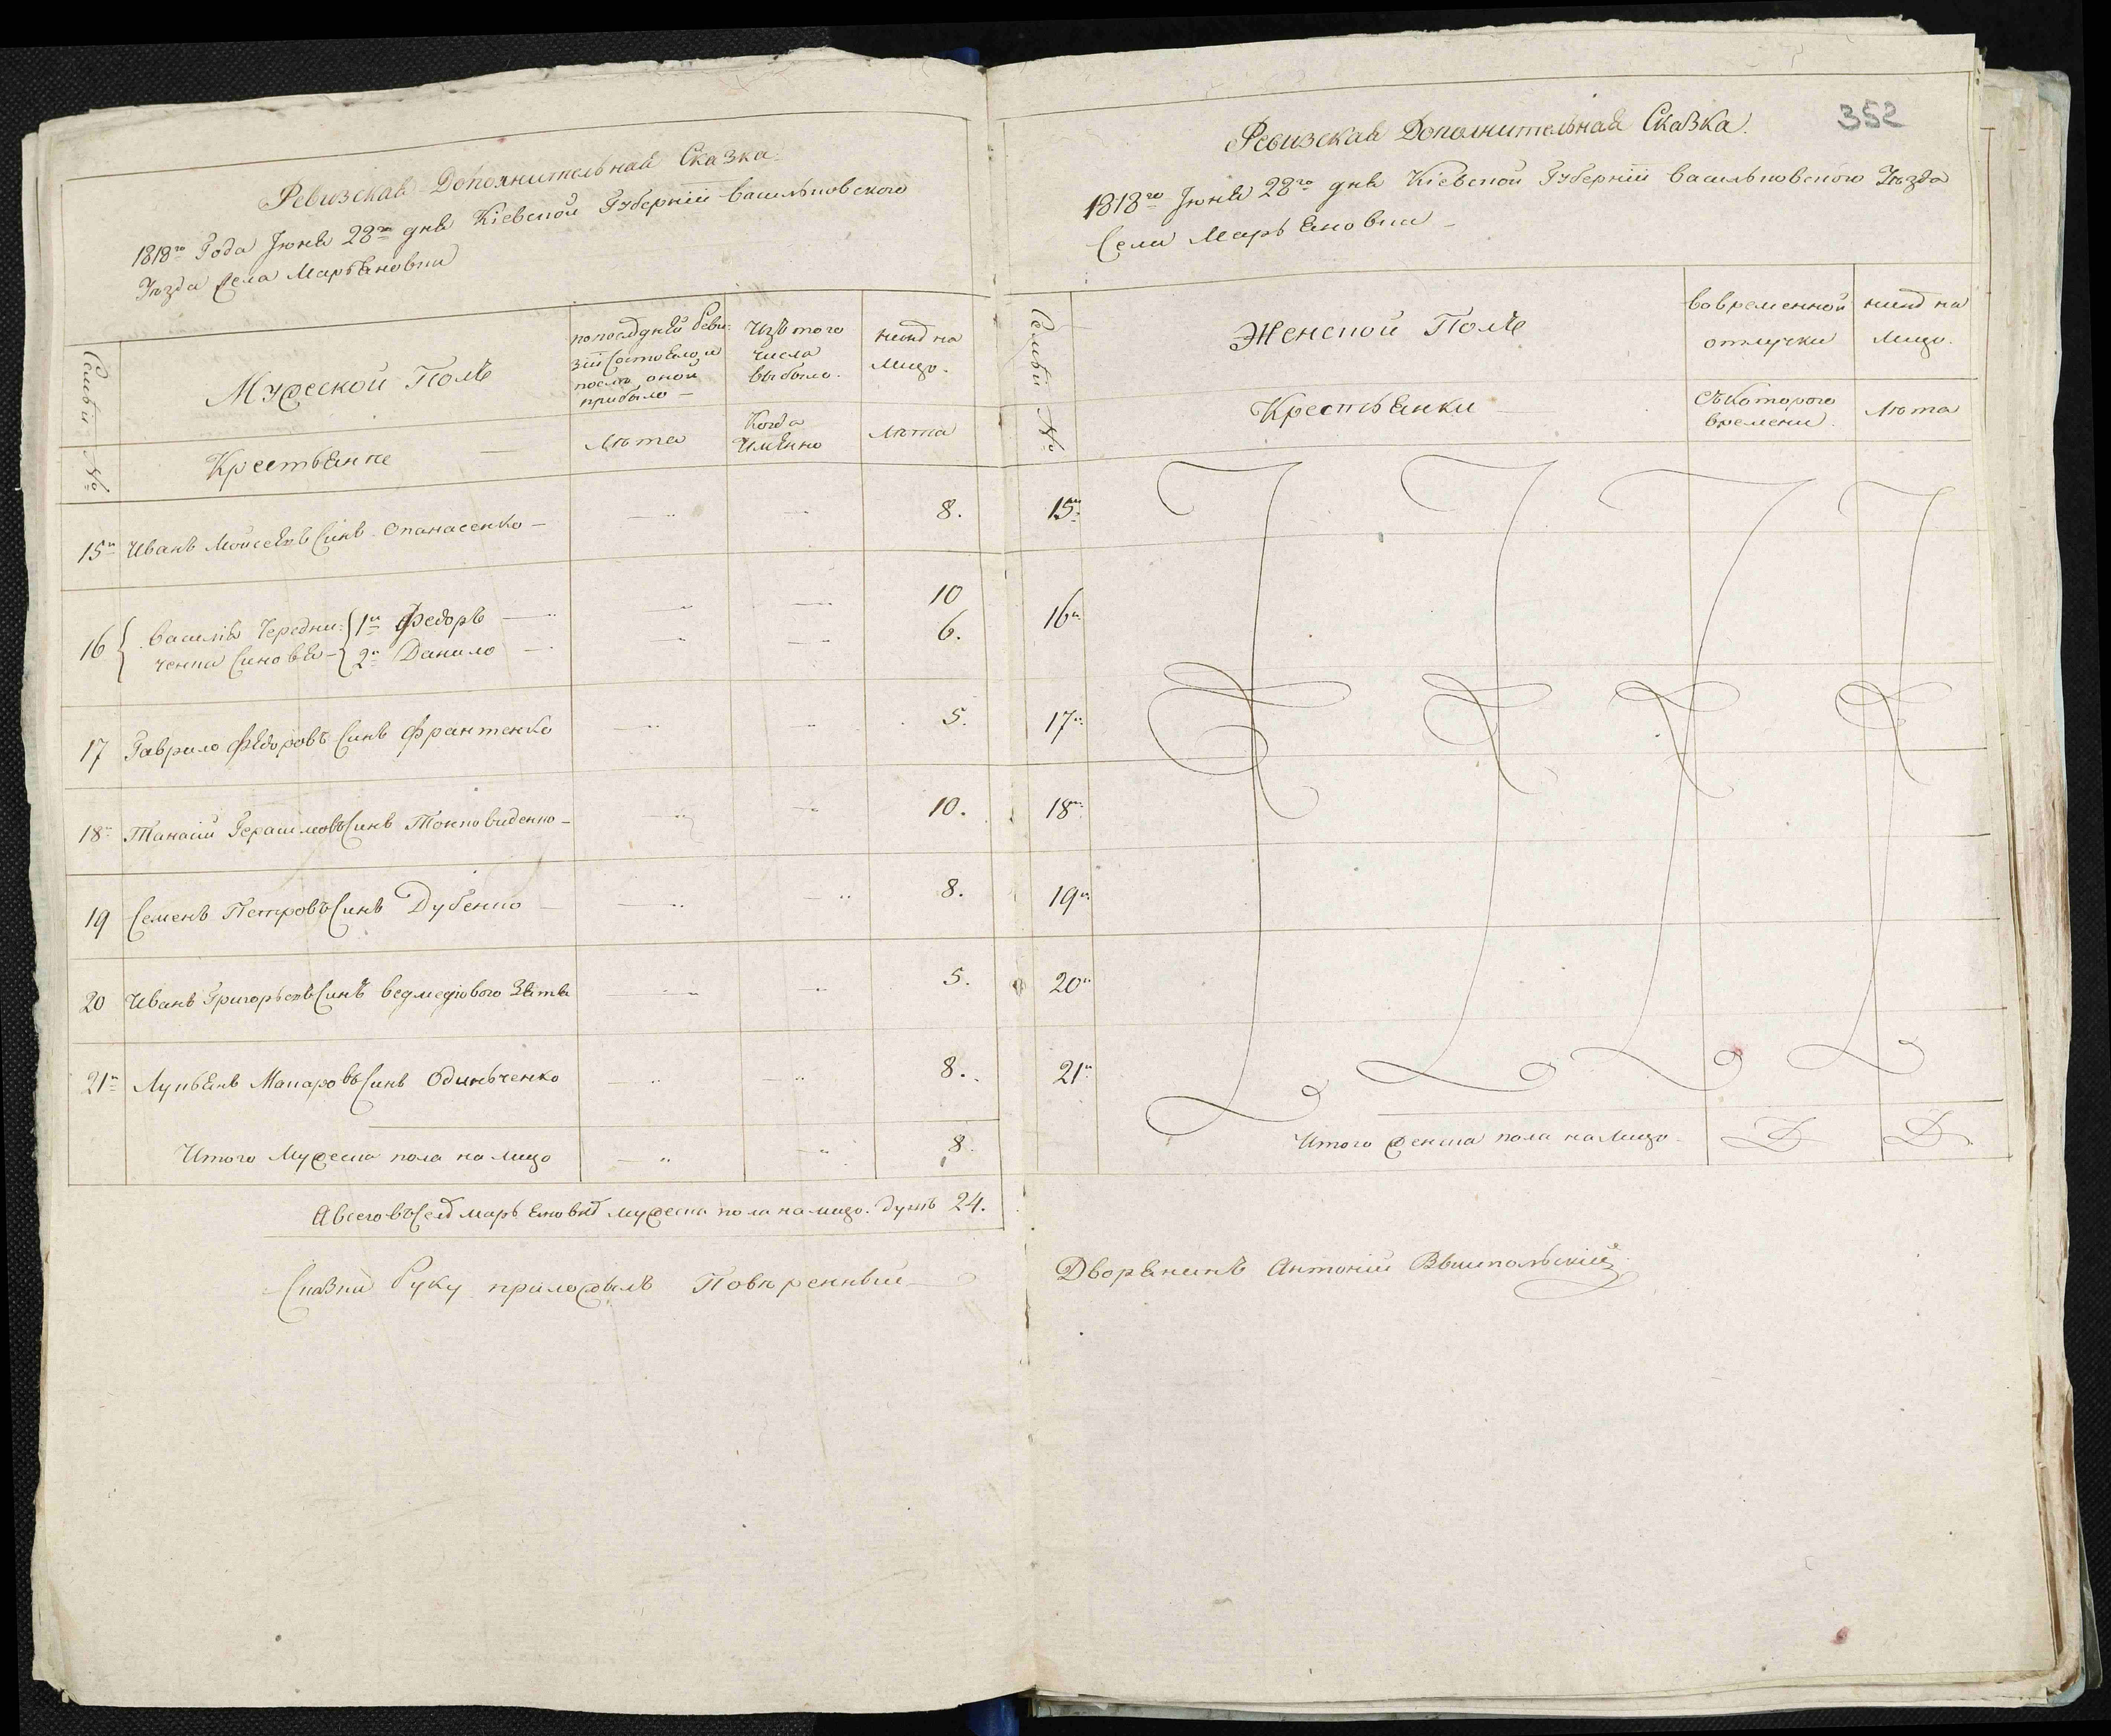 Ревизская Дополнительная Сказка.
1818го Года Июня 28го дня Кіевской Губерніи Васильковского
Уѣзда Села Марьяновки
Семьи №
Мужеской Полъ
по последней Реви-
зіи Состояло, и
послѣ оной
прибыло
Изъ того
числа
выбыло.
нинѣ на
лицо.
Крестьяне
Лѣта
Когда
Имянно
Лѣта
15й Иванъ Мойсеевъ Синъ Опанасенко 8.
16 Василія Чередни- 1й Федоръ 10
ченка Синовья 2й Данило 6.
17 Гаврило Федоровъ Синъ Франтенко 5.
18 Танасій Герасимовъ Синъ Токповиденко 10.
19 Семенъ Петровъ Синъ Дубенко 8.
20 Иванъ Григорьевъ Синъ Ведмедіового Зятя 5.
21й Лукьянъ Макаровъ Синъ Одинченко 8.
Итого Мужеска пола на лицо 8.
А всего въ Селѣ Марьяновкѣ мужеска пола на лицо. Душъ 24.
Сказки Руку приложылъ Повѣренный
352
Ревизская Дополнительная Сказка.
1818го Июня 28го дня Кіевской Губерніи Васильковского Уѣзда
Села Марьяновки
Семьи №
Женской Полъ
во временной
отлучки
нинѣ на
лицо.
Крестьянки
Съ Которого
времени.
Лѣта
15й
16й
17й
18й
19й
20й
21й
Итого женска пола на Лицо
Дворянинъ Антоній Вышпольскій